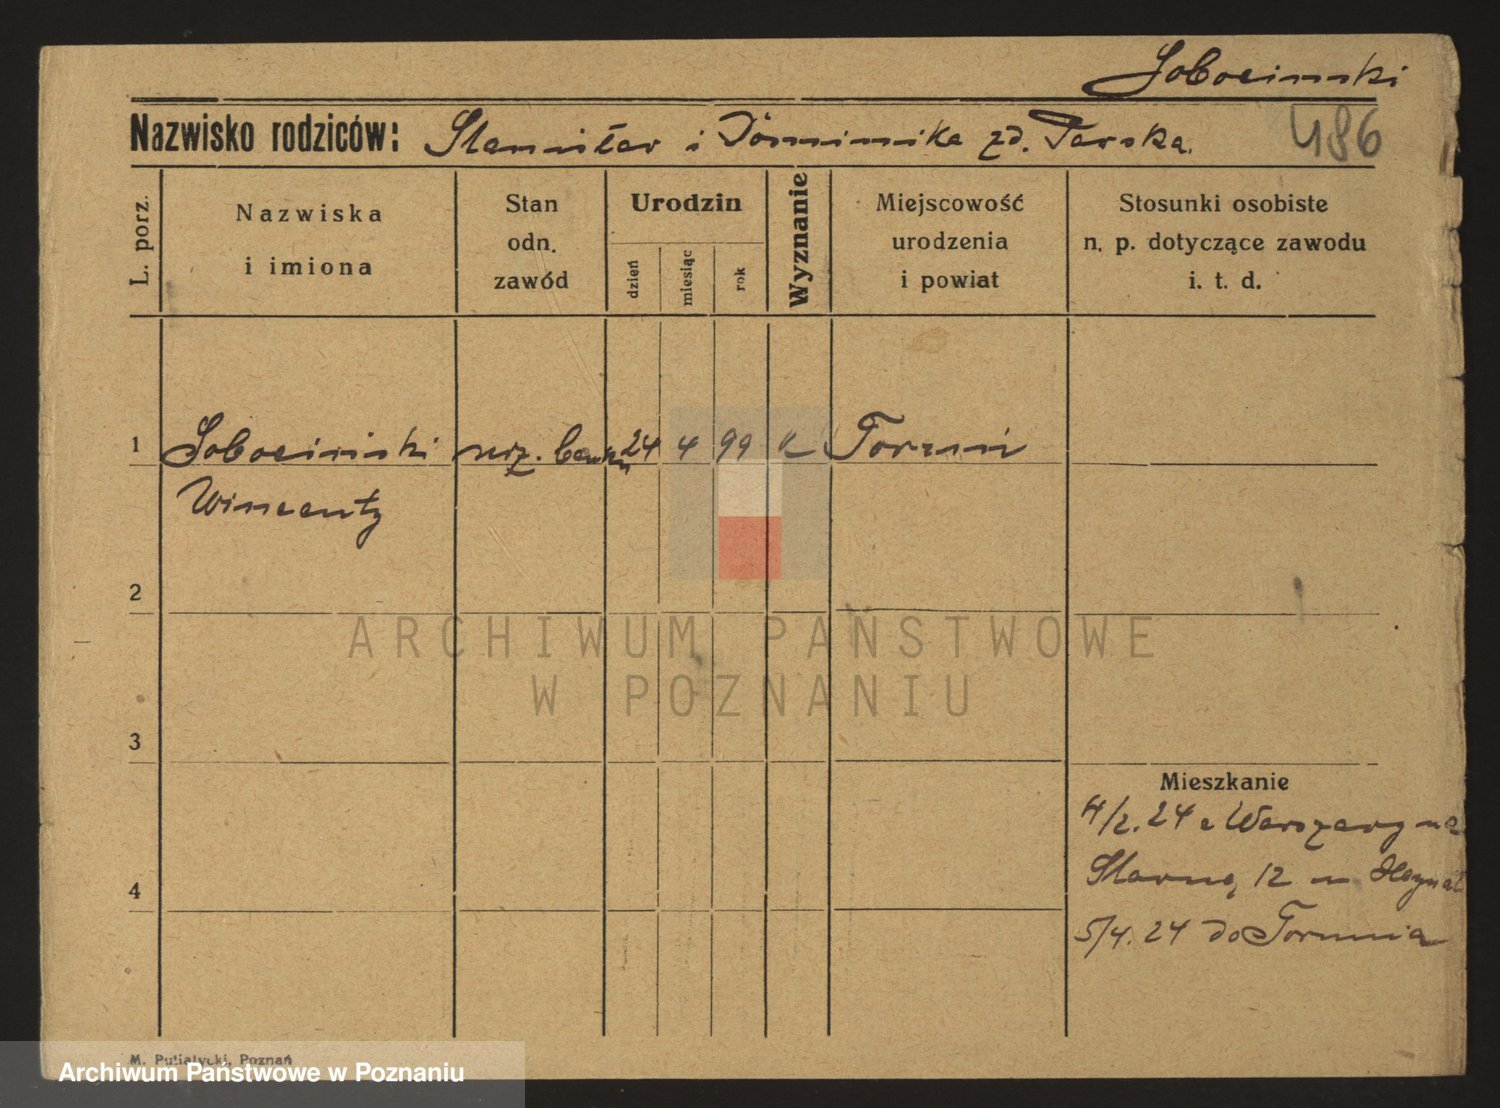 Sobociński
Nazwisko rodziców: Stanisław i Dominika zd. Tarska.
486
L. porz.
Nazwiska
i imiona
Stan
odn.
zawód
Urodzin
dzień
miesiąc
rok
Wyznanie
Miejscowość
urodzenia
i powiat
Stosunki osobiste
n. p. dotyczące zawodu
i. t. d.
1 Sobociński urz. banku 24 4 99 k Toruń
Wincenty
2
3
Mieszkanie
4/2. 24 z Warszawy na
4
12 u
5/4. 24 do Torunia
M. Putiatycki, Poznań
ARCHIWUM PAŃSTWOWE
W POZNANIU
Archiwum Państwowe w Poznaniu